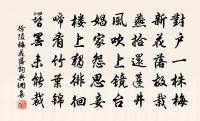 對戶一株梅
新花落故栽
燕拾還蓮井
風吹上鏡台
娼家怨思妾
樓上獨徘徊
啼看竹葉錦
簪罷未能裁
徐陵梅花落詞典網集